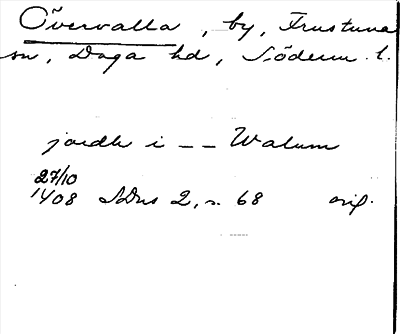 Övervalla, by, Frustuna
sn, Daga hd, Söderm. l.
jordh i _ _ Walum
27/10
1408 SDns 2, s. 68 orig.